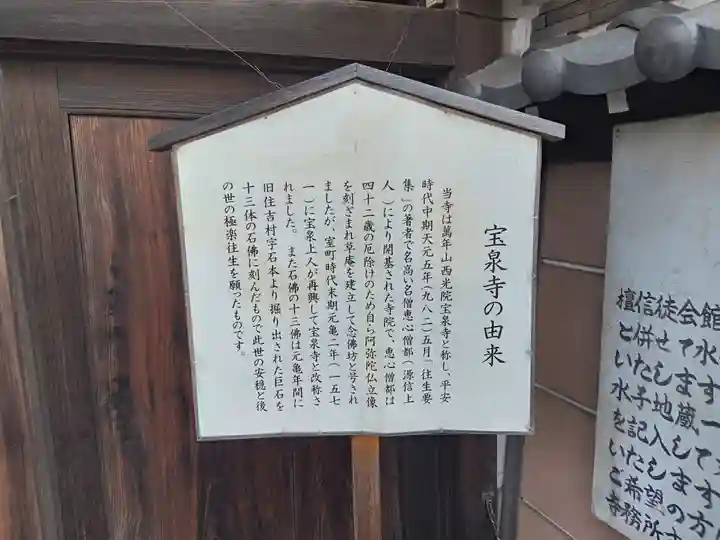 宝泉寺の由来
当寺は萬年山西光院宝泉寺と称し、平安
時代中期天元五年（九八二）五月「往生要
集」の著者で名高い名僧恵心僧都（源信上
人）により開基された寺院で、恵心僧都は
四十二歳の厄除けのため自ら阿弥陀仏立像
を刻ざまれ草庵を建立して念佛坊と号され
ましたが、室町時代末期元亀二年（一五七
一）に宝泉上人が再興して宝泉寺と改称さ
れました。また石佛の十三佛は元亀年間に
旧住吉村字石本より掘り出された巨石を
十三体の石佛に刻んだもので此世の安穏と後
の世の極楽往生を願ったものです。
檀信徒会館
と併せて水
いたします
水子地蔵一
を記入して
いたします
ご希望の方
寺務所